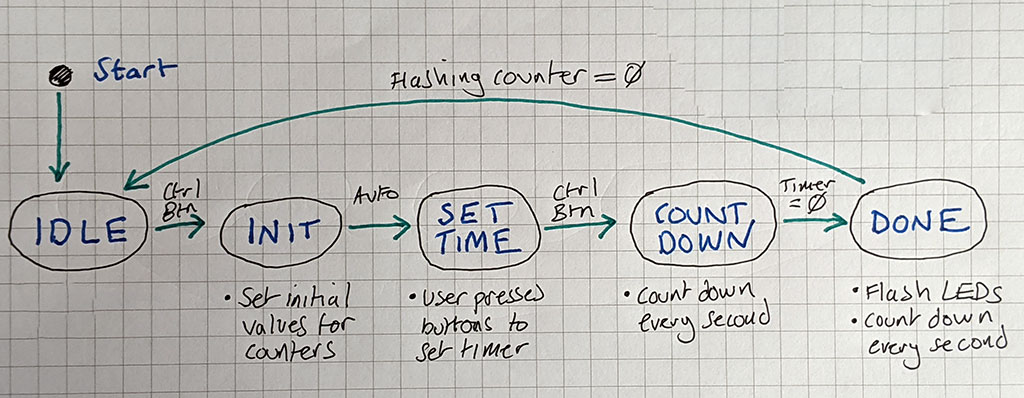 Start
Flashing counter = Ø
IDLE
Ctrl
Btn
INIT
Auto
SET
TIME
Ctrl
Btn
COUNT
DOWN
Timer
= Ø
DONE
• Set initial
values for
counters
• User presses
buttons to
set timer
• Count down
every second
• Flash LEDs
• Count down
every second